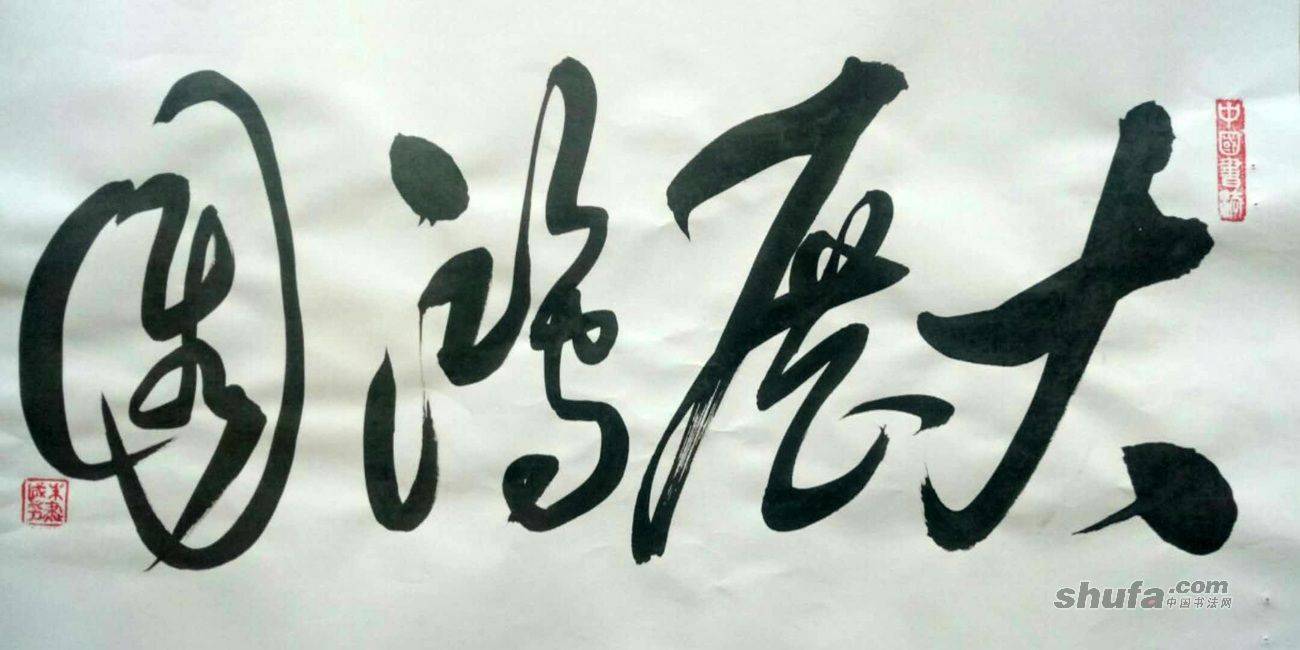 大展鸿图
中國書
shufa.com
中国书法网